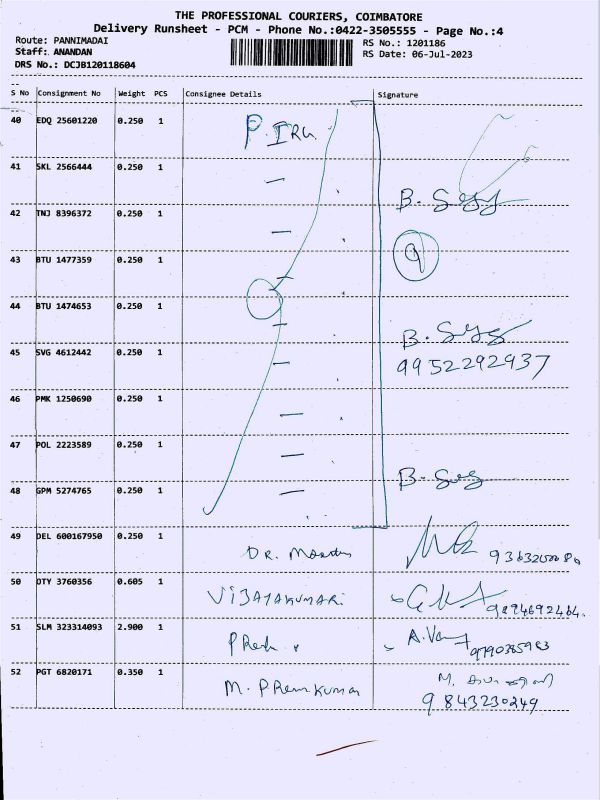 THE PROFESSIONAL COURIERS, COIMBATORE
Delivery Runsheet - PCM - Phone No.:0422-3505555 - Page No.:4
Route: PANNIMADAI
RS No.: 1201186
Staff: ANANDAN
RS Date: 06-Jul-2023
DRS No.: DCJB120118604
S No Consignment No Weight PCS Consignee Details Signature
40 EDQ 25601220 0.250 1
41 SKL 2566444 0.250 1
B.
42 TNJ 8396372 0.250 1
9
43 BTU 1477359 0.250 1
44 BTU 1474653 0.250 1
B.
45 SVG 4612442 0.250 1 9952292937
46 PMK 1250690 0.250 1
47 POL 2223589 0.250 1
B.
48 GPM 5274765 0.250 1
49 DEL 600167950 0.250 1 DR.
50 DTY 3760356 0.605 1 VIJAYAKUMARI 9894692464.
51 SLM 323314093 2.900 1 A.
52 PGT 6820171 0.350 1 M. PRemkumar M.
9843230249